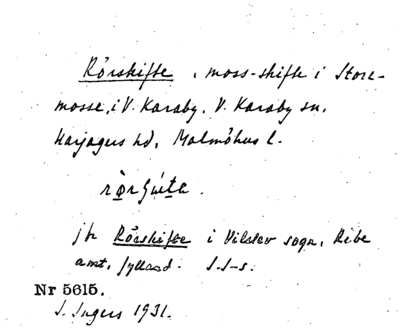 Rörskifte, moss-skifte i Store-
mosse, i V. Karaby, V. Karaby sn,
Harjagers hd, Malmöhus l.
jfr Rörskifte i Vilslev sogn, Ribe
amt, Jylland. I.I-s.
Nr 5615.
I. Ingers 1931.